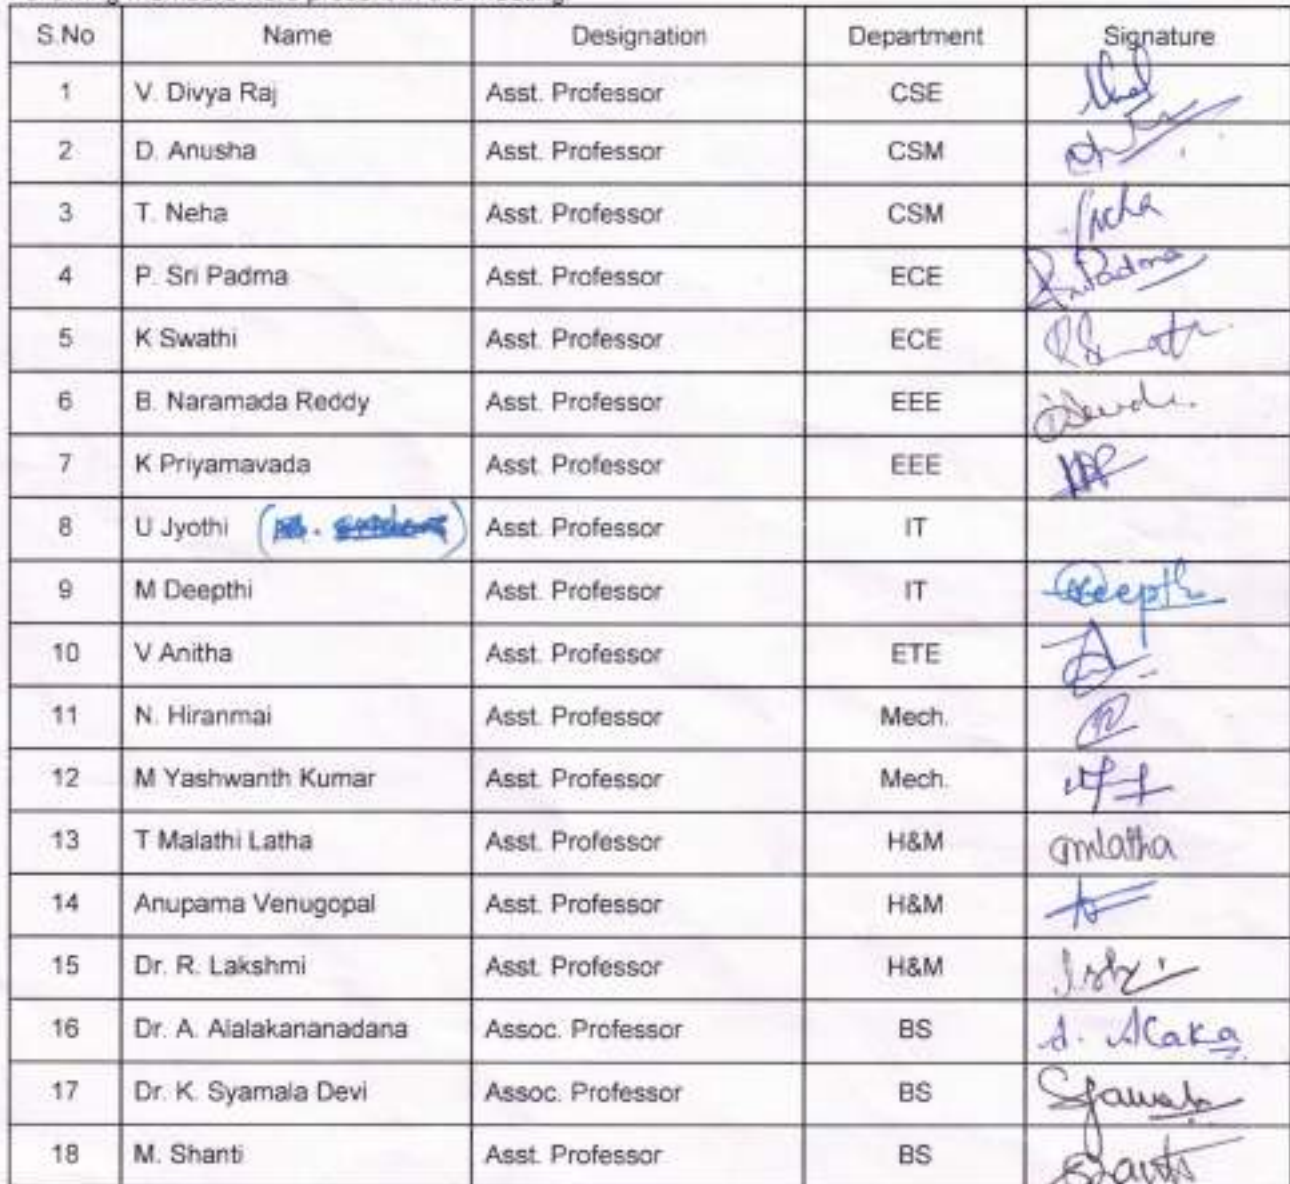 S.No Name Designation Department Signature
1 V. Divya Raj Asst. Professor CSE
2 D. Anusha Asst. Professor CSM
3 T. Neha Asst. Professor CSM Neha
4 P. Sri Padma Asst. Professor ECE Sri Padma
5 K Swathi Asst. Professor ECE
6 B. Naramada Reddy Asst. Professor EEE
7 K Priyamavada Asst. Professor EEE
8 U Jyothi Asst. Professor IT
9 M Deepthi Asst. Professor IT Deepthi
10 V Anitha Asst. Professor ETE
11 N. Hiranmai Asst. Professor Mech.
12 M Yashwanth Kumar Asst. Professor Mech.
13 T Malathi Latha Asst. Professor H&M mlatha
14 Anupama Venugopal Asst. Professor H&M
15 Dr. R. Lakshmi Asst. Professor H&M
16 Dr. A. Alalakananadana Assoc. Professor BS A. Alaka
17 Dr. K. Syamala Devi Assoc. Professor BS
18 M. Shanti Asst. Professor BS